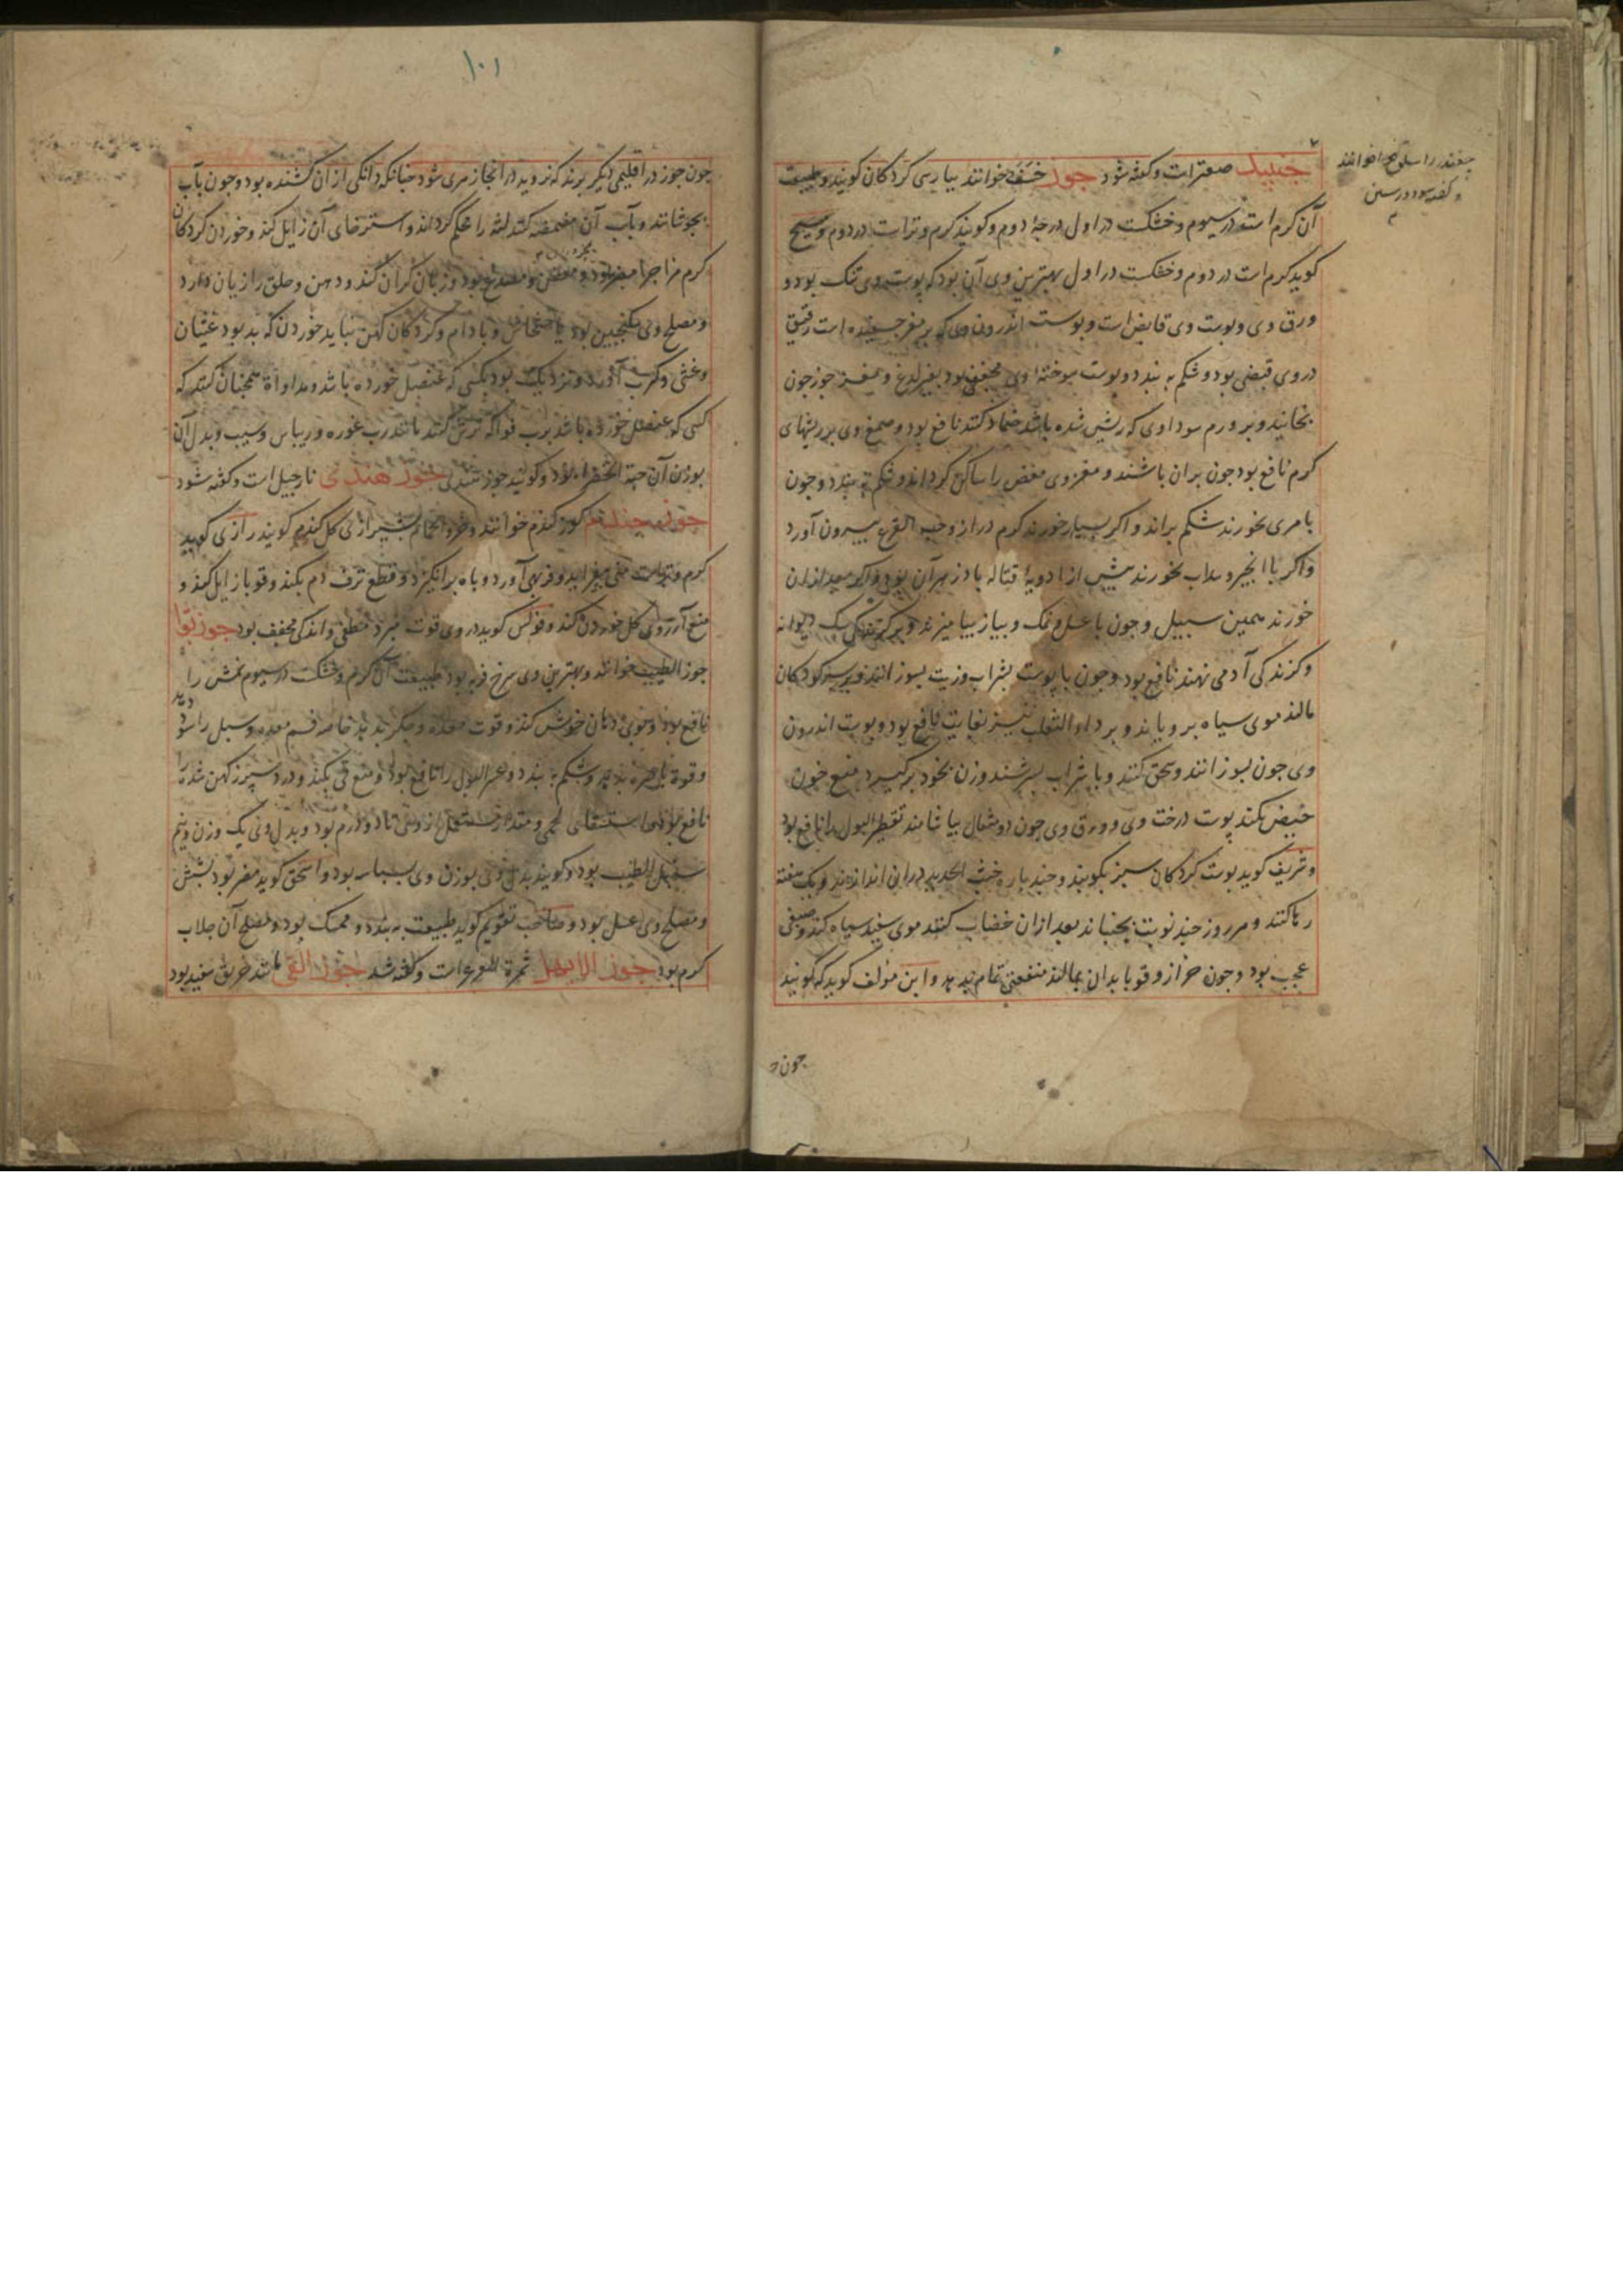 صعتر است و کفته شود جوز خسف خوانند بپارسی کردکان کویند و طبیعت
آن کرم است در سیوم و خشکست در اول درجهٔ دوم و کویند کرم و تر است در دوم و مسیح
کوید کرم است در دوم و خشکست در اول بهترین وی آن بود که پوست وی تنک بود و
ورق وی و پوست وی قابض است و پوست اندرون وی که بر مغز چسبیده است رقیق
در وی قبضی بود و شکم به بندد و پوست سوخته اوی مجفف بود بغیر لذع و مغز جوز چون
بخایند و بر ورم سوداوی که ریش شده باشد ضماد کنند نافع بود و صمغ وی بر ریشهای
کرم نافع بود چون بران باشند و مغز وی مغص را ساکن کرداند و شکم به بندد و چون
با مری بخورند شکم براند و اکر بسیار خورند کرم دراز و حب القرع بیرون آورد
و اکر با انجیر و سداب بخورند پیش از ادویهٔ قتاله پادزهر آن بود و اکر بعد ازان
خورند همین سبیل و چون با عسل و نمک و پیاز بیامیزند و بر کزندکی سک دیوانه
و کزندکی آدمی نهند نافع بود و چون با پوست بشراب و زیت بسوزانند و بر سر کودکان
مالند موی سیاه برویاند و بر داء الثعلب نیز بغایت نافع بود و پوست اندرون
وی چون بسوزانند و سحق کنند و با شراب بسرشند و زن بخود برکیرد منع خون
حیض بکند پوست درخت وی و ورق وی چون دو مثقال بیاشامند تقطیر البول را نافع بود
و شریف کوید پوست کردکان سبز بکوبند و چند پاره خبث الحدید در ان اندازند و یک هفته
رها کنند و هر روز چند نوبت بجنبانند بعد ازان خضاب کنند موی سفید سیاه کند و صبغی
عجب بود و چون حزاز و قوبا بدان بمالند منفعتی تمام بدهد و این مؤلف کوید که کویند
چون
چغندر را سلق خوانند
۱۰۱
چون جوز در اقلیمی دیکر برند که نروید در انجا زهری شود چنانکه دانکی از آن کشنده بود و چون بآب
بجوشانند و بآب آن مضمضه کنند لثه را محکم کرداند و استرخای آن زایل کند و خوردن کردکان
کرم مزاج را مضر بود و مصدع بود و زبان کران کند و دهن و حلق را زیان دارد
و مصلح وی سکنجبین بود یا خشخاش و بادام و کردکان کهن نباید خوردن که بد بود غثیان
و غشی و کرب آورد و نزدیک بود بکسی که عنصل خورده باشد و مداواة همچنان کنند که
کسی که عنصل خورده باشد برب فواکه ترش کنند مانند رب غوره و ریباس و سیب و بدل آن
بوزن آن حبة الخضراء بود و کویند جوز جوز هندی نارجیل است و کفته شود
جوز جندم کوز کندم خوانند و خرء الحمام بشیرازی کل کندم کویند رازی کوید
کرم و تر است منی بیفزاید و فربهی آورد و باه برانکیزد و قطع نزف دم بکند و قوبا زایل کند و
منع آرزوی کل خوردن کند و فوکس کوید در وی قوت مبرد مطفی و اندکی مجفف بود جوز بوا
جوز الطیب خوانند و بهترین وی سرخ فربه بود طبیعت آن کرم و خشکست در سیوم نمش را
نافع بود و بوی دهان خوش کند و قوت معده و جکر بدهد خاصه فم معده و سبل را سود
و قوة باصره بدهد و شکم به بندد و عسر البول را نافع بود و منع قی بکند و درد سپرز کهن شده
نافع بود و استسقای لحمی و مقدار مستعمل از وی تا دو درم بود و بدل وی یک وزن و نیم
سنبل الطیب بود و کویند بدل وی بوزن وی بسباسه بود و اسحق کوید مضر بود بشش
و مصلح وی عسل بود و صاحب تقویم کوید طبیعت به بندد و ممسک بود و مصلح آن جلاب
کرم بود جوز الابهل ثمرة العرعر است و کفته شد جوز القی مانند خربق سفید بود